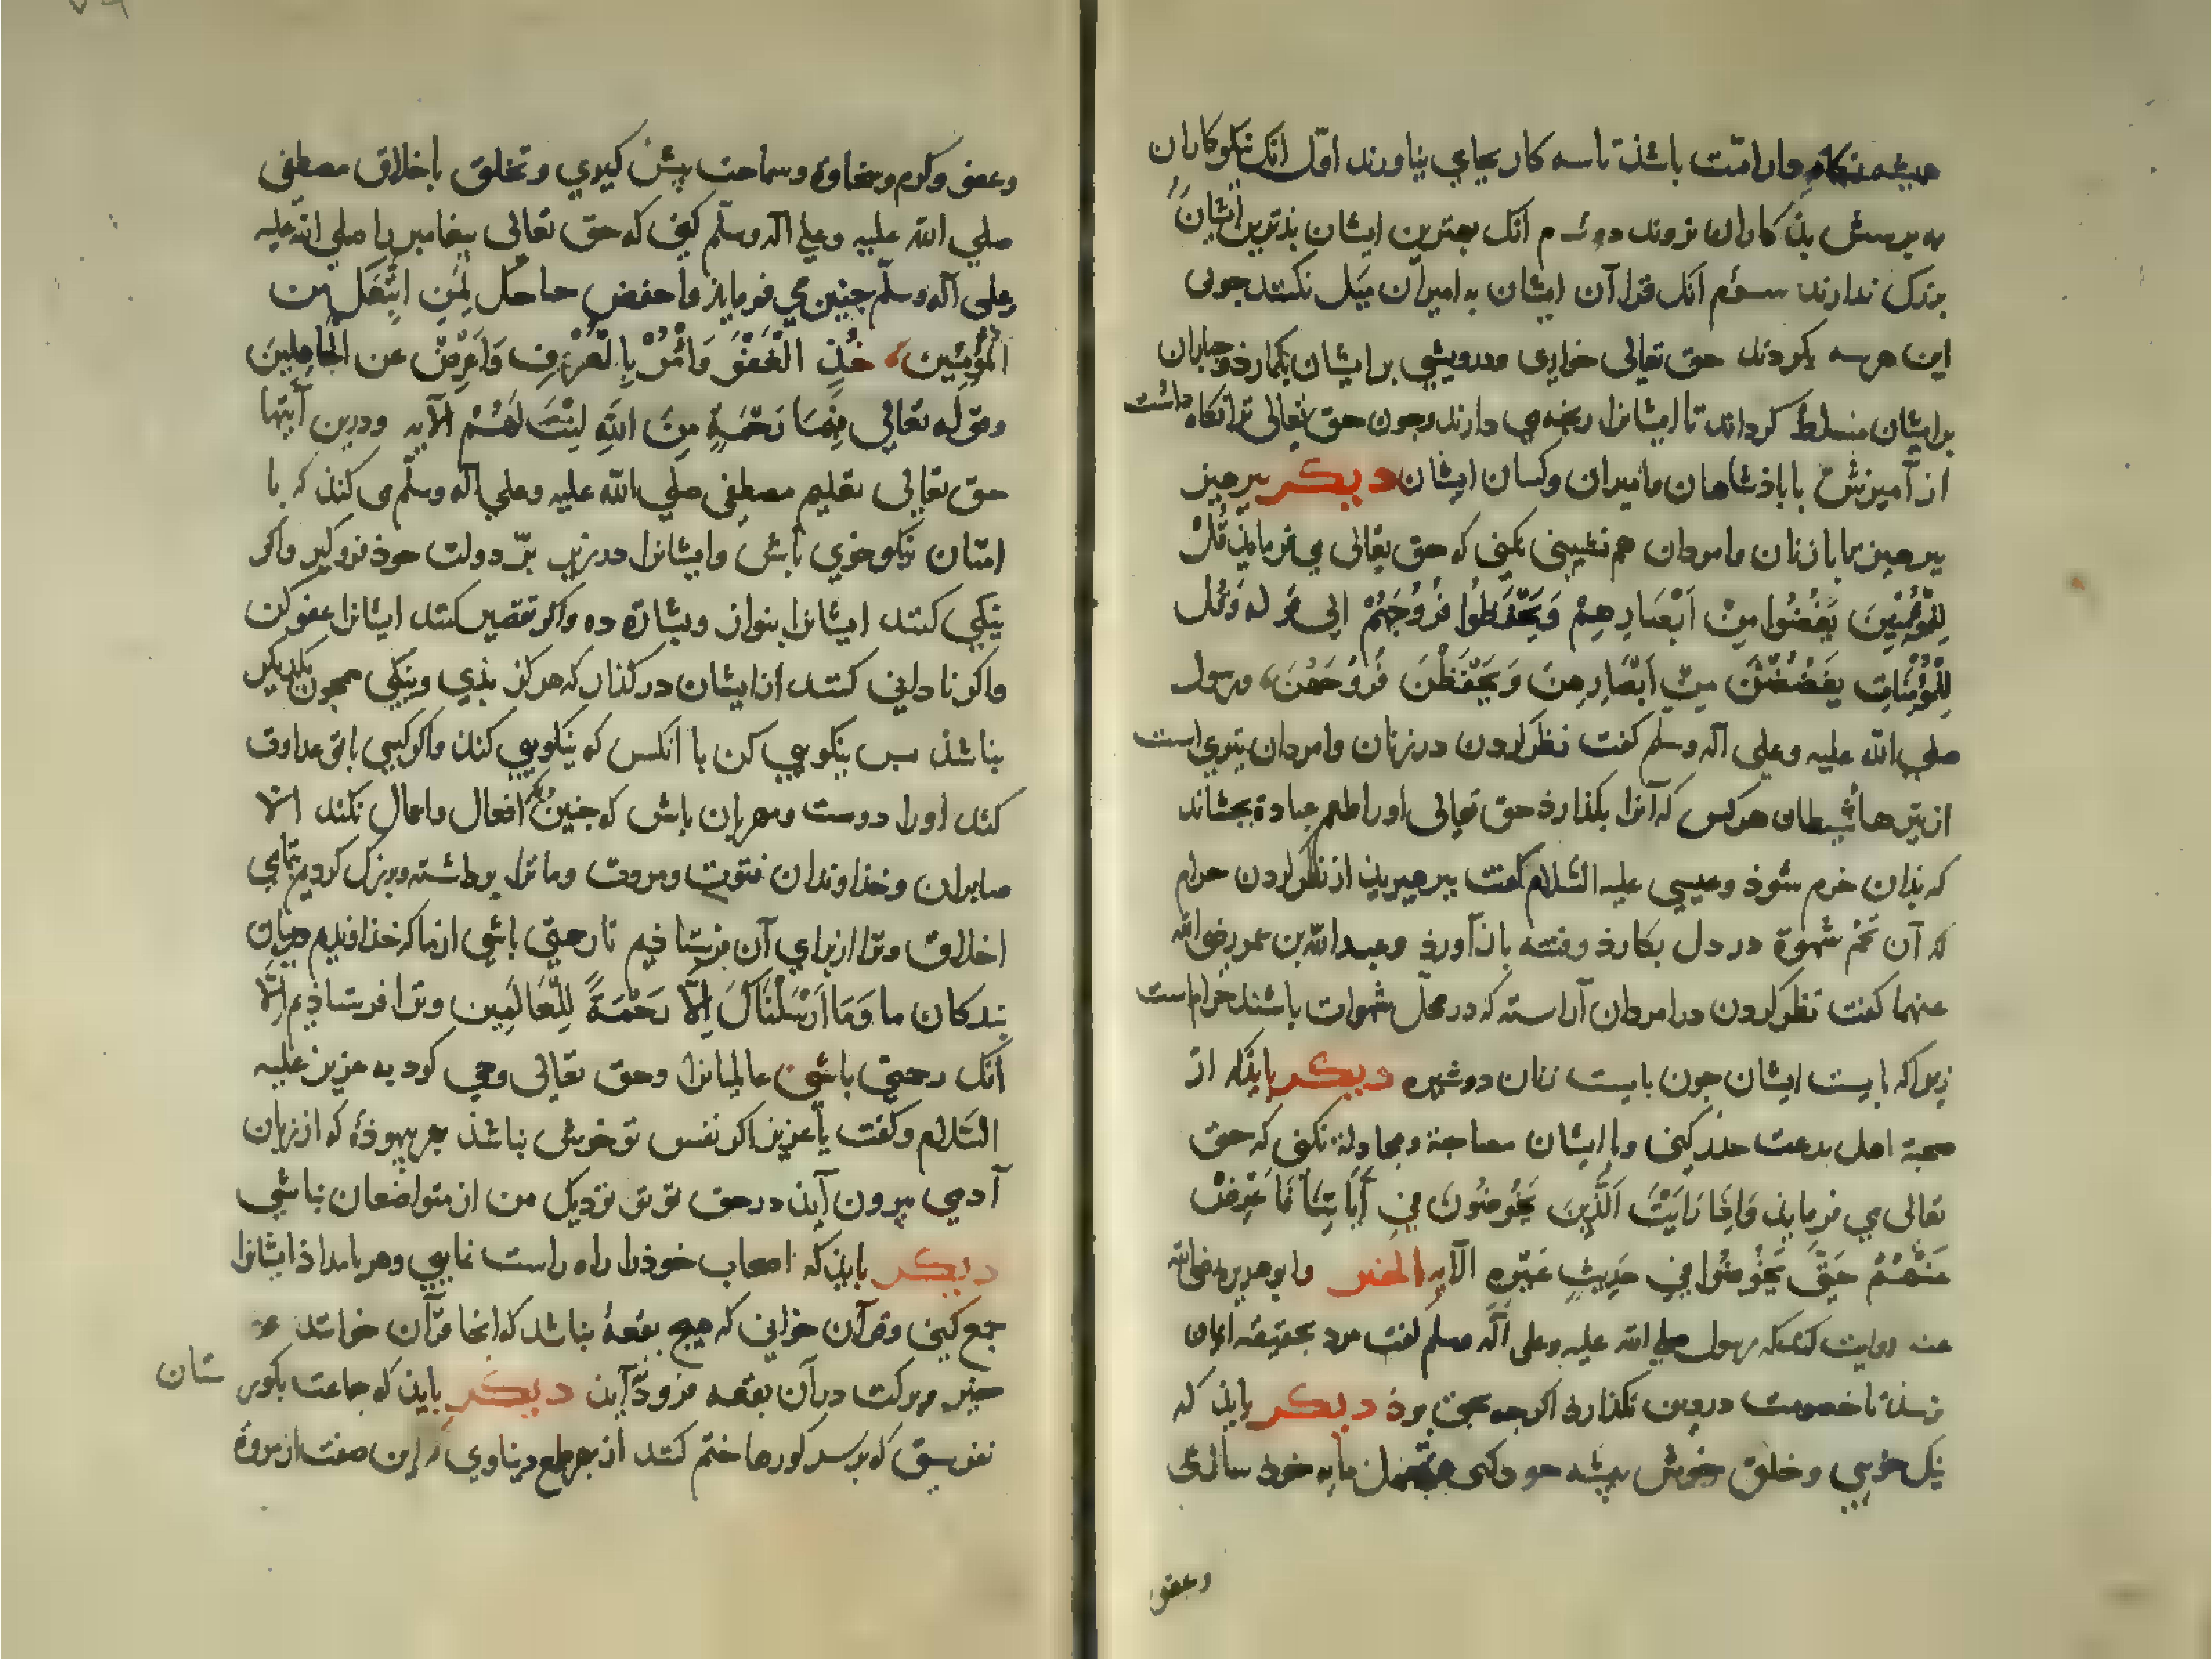 همیشه نکاه دار امّت باشذ تا سه کار بجاي نیاورند اوّل انک نیکوکاران
به برسش بذکاران نروند دوئم انک بهترین ایشان بذترین ایشان را
بزرک ندارند سوم انک قرا آن ایشان به امیران میل نکنند جون
این هر سه بکردند حق تعالی خواری ودرویشی بر ایشان بکمارذ وجباران
بر ایشان مسلط کرداند تا ایشانرا رنجه می دارند وجون حق تعالی ترا نکاه داشت
از آمیزش با باذشاهان وامیران وکسان ایشان دیکر برهیز
برهیز تا با زنان وامردان هم نشینی نکنی که حق تعالی می فرمایذ قُلْ
لِلْمُؤْمِنِینَ یَغُضُّوا مِنْ اَبْصَارِهِمْ وَیَحْفَظُوا فُرُوجَهُمْ الی قوله وَقُل
لِلْمُؤْمِنَاتِ یَغْضُضْنَ مِنْ اَبْصَارِهِنَ وَیَحْفَظْنَ فُرُوجَهُنَ، ورسول
صلی الله علیه وعلی آله وسلم کفت نظر کردن در زنان وامردان تیری است
از تیرهاء شیطان هر کس که آنرا بکذارذ حق تعالی او را طعم عبادة بجشاند
که بذان خرم شوذ وعیسی علیه السلام کفت برهیزیذ از نظر کردن حرام
که آن تخم شهوة در دل بکارذ وفتنه باز آورذ وعبدالله بن عمر رضی الله
عنهما کفت نظر کردن در امردان آراسته که در محلّ شهوات باشند حرام است
زیرا که بایست ایشان جون بایست زنان دوشیزه دیکر بایذکه از
صحبة اهل بدعت حذر کنی وبا ایشان مصاحبة ومجادلة نکنی که حق
تعالی می فرمایذ وَاِذَا رَاَیْتَ الَّذِینَ یَخُوضُونَ فِي آیَاتِنَا فَاَعْرِضْ
عَنْهُمْ حَتَّی یَخُوضُوا فِي حَدِیثٍ غَیْرِهِ الآیه الخبر وابوهریره رضی الله
عنه روایت کند که رسول صلی الله علیه وعلی آله وسلم کفت مرد بحقیقه ایمان
نرسذ تا خصومت در دین نکذارذ اکرجه محق بوذ دیکر بایذ که
نیک خویی وخلق خوش بیشه خو د کنی وتحمل مایه خوذ سازی
وعفو
وعفو وکرم وسخاوة وسماحت بیش کیري وتخلق باخلاق مصطفی
صلی الله علیه وعلی آله وسلّم کنی که حق تعالی بیغامبر را صلی الله علیه
وعلی آله وسلّم جنین می فرمایذ واخفض جناحک لِمَنِ اتَّبَعَکَ مِن
الْمُؤْمِنِین، خُذِ الْعَفْوَ وَاْمُرْ بِالْعُرْفِ وَاَعْرِضْ عن الْجَاهِلِینَ
وقوله تعالی فَبِمَا رَحْمَةٍ مِنَ اللّهِ لِنْتَ لَهُمْ الآیه ودرین آیتها
حق تعالی تعلیم مصطفی صلی الله علیه وعلی آله وسلّم می کنذ که با
امّتان نیکو خوي باش وایشانرا در زیر برّ دولت خوذ فروکیر واکر
نیکی کنند ایشانرا بنواز وبشارة ده واکر تقصیر کنند ایشانرا عفو کن
واکر نادانی کنند از ایشان در کذار که هرکز بذي ونیکی همجون یکدیکر
نباشذ بس نیکویی کن با آنکس که نیکویی کنذ واکر کسی با تو عداوت
کند او را دوست ومهربان باش که جنین افعال واعمال نکند الا
صابران وخذاوندان فتوت ومروت وما ترا برداشته وبزرک کردیم بتمامی
اخلاق وترا از براي آن فرستاذیم تا رحمتی باشی از ما که خذاوندیم میان
بندکان ما وَمَا اَرْسَلْنَاکَ اِلَّا رَحْمَةً لِلْعَالَمِین وترا فرستاذیم الّا
آنک رحمتی باشی عالمیانرا وحق تعالی وحی کرد به عزیز علیه
السّلام وکفت یا عزیز اکر نفس تو خوش نباشذ بهر بیهوذۀ که از زبان
آدمی بیرون آیذ در حق تو تو نزدیک من از متواضعان نباشی
دیکر بایذ که اصحاب خوذرا راه راست نمایی وهر بامداذ ایشانرا
جمع کنی وقرآن خوانی که هیج بقعۀ نباشد که انجا قرآن خوانند
خیر وبرکت در آن بقعه فروذ آیذ دیکر بایذ که جماعت بکورستان
نفرستی که بر سر کورها ختم کنند از بهر طمع دنیاوي که این صفت از مروة